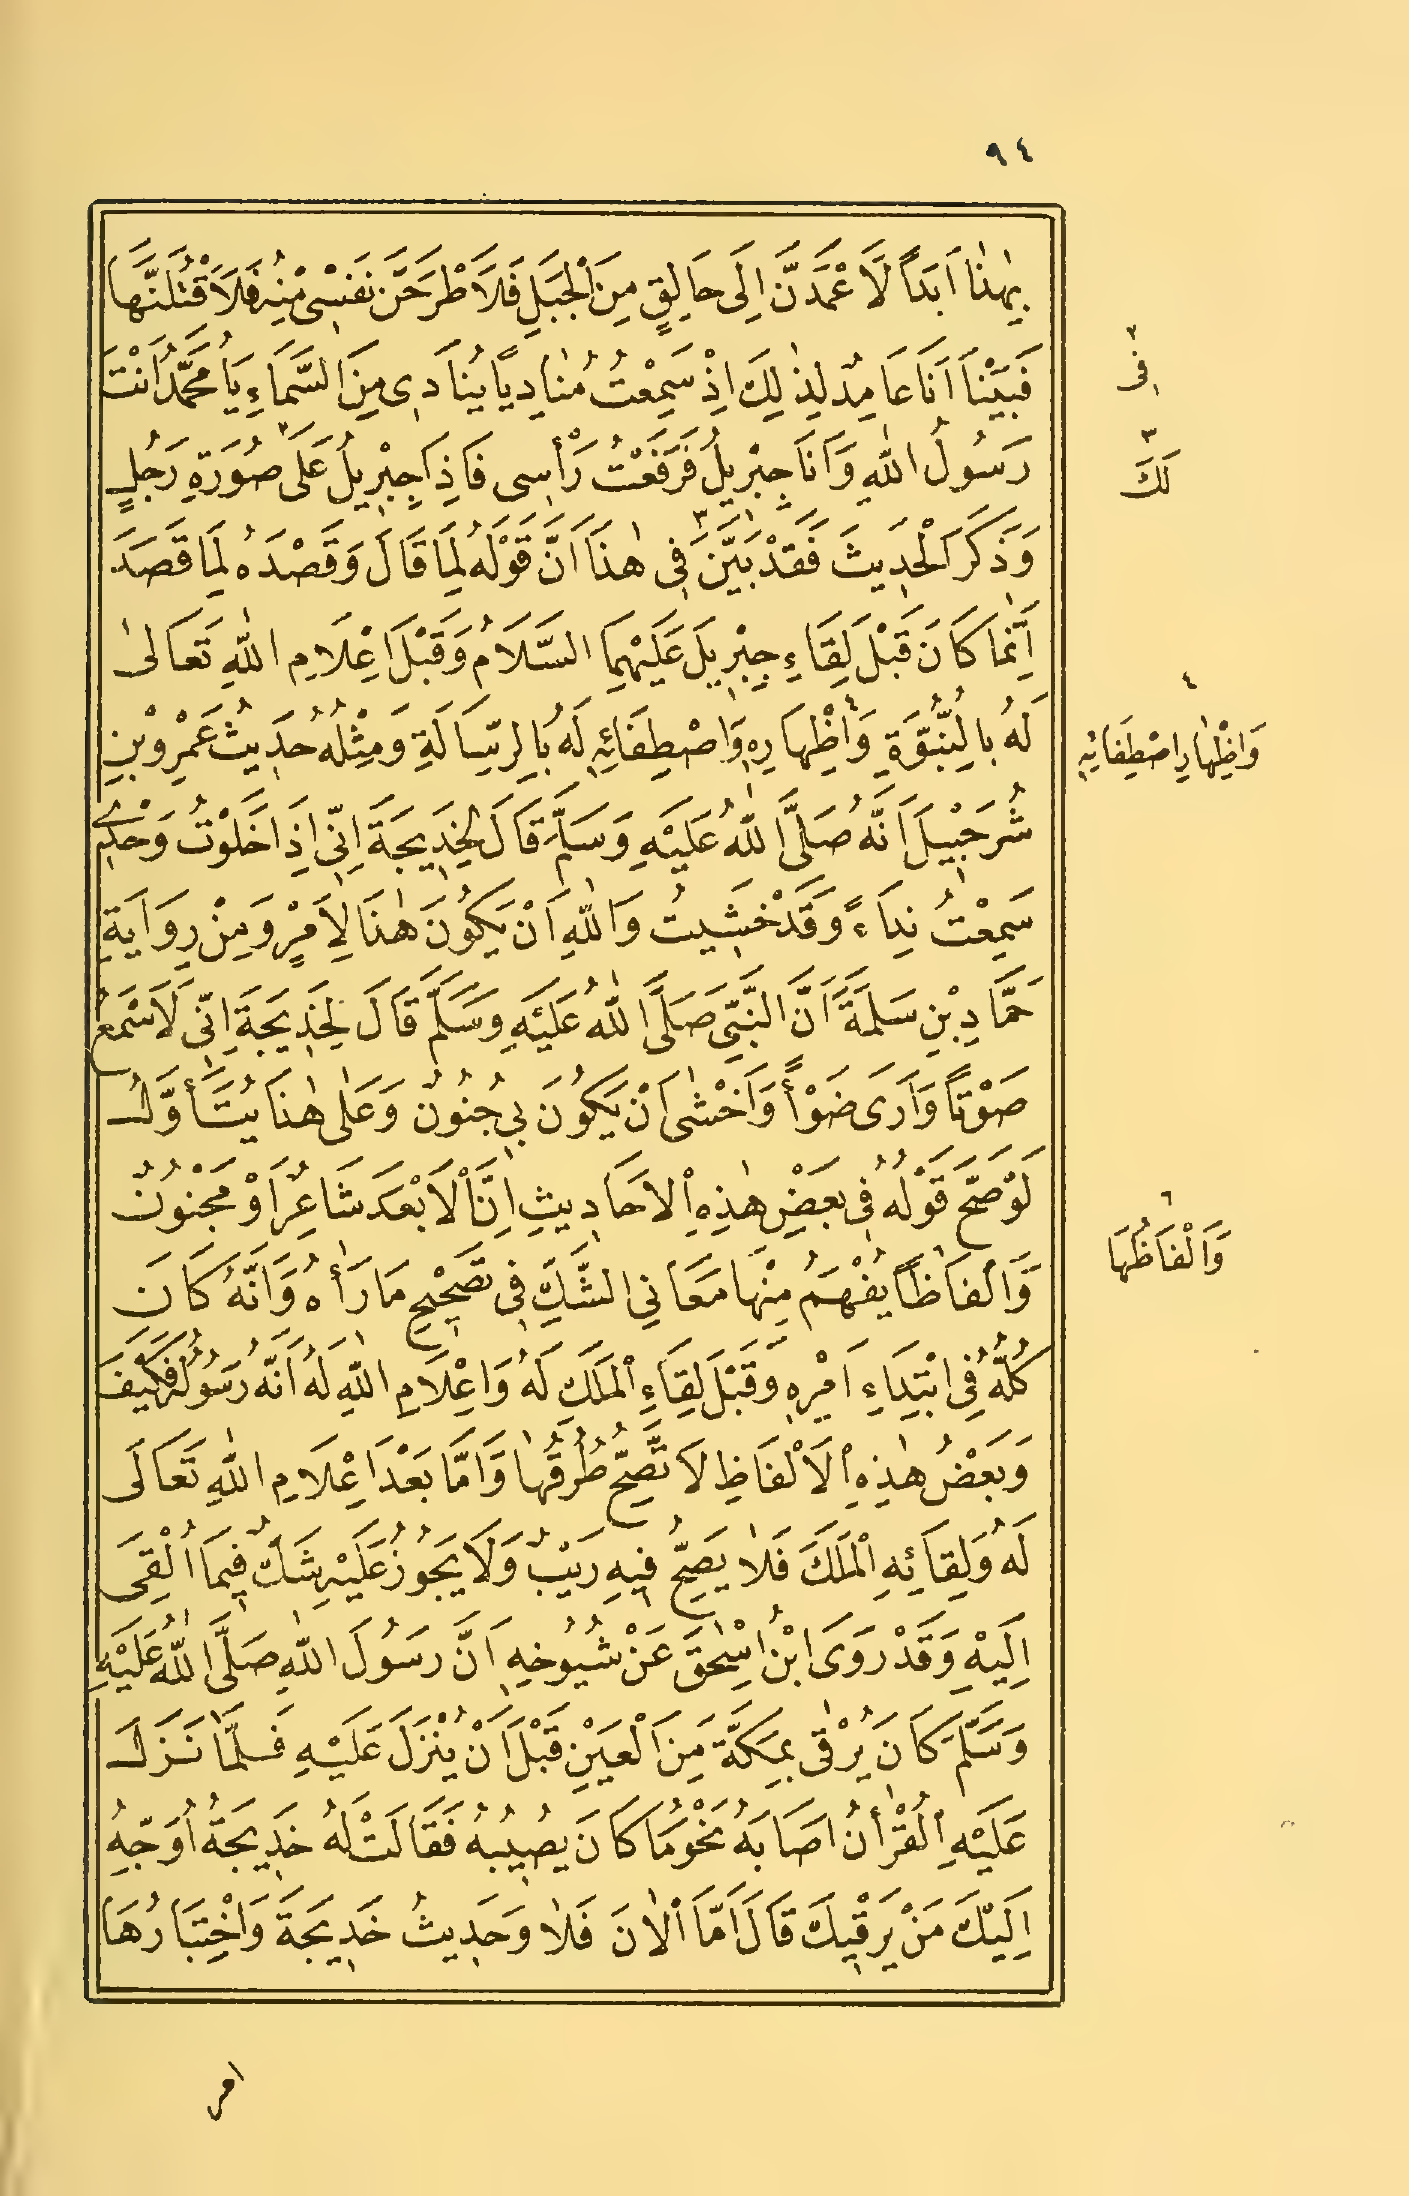 ٩٤
بِهٰذَا اَبَدًا لَاَعْمَدَنَّ اِلَى حَالِقٍ مِنَ الْجَبَلِ فَلَاَطْرَحَنَّ نَفْسِى مِنْهُ فَلَاَقْتُلَنَّهَا
فَبَيْنَا اَنَا عَامِدٌ لِذٰلِكَ اِذْ سَمِعْتُ مُنَادِيًا يُنَادِى مِنَ السَّمَاءِ يَا مُحَمَّدُ اَنْتَ
رَسُولُ اللّٰهِ وَاَنَا جِبْرِيلُ فَرَفَعْتُ رَأْسِى فَاِذَا جِبْرِيلُ عَلَى ٢ صُورَةِ رَجُلٍ
وَذَكَرَ الْحَدِيثَ فَقَدْ بَيَّنَ ٣ فِى هٰذَا اَنَّ قَوْلَهُ لِمَا قَالَ وَقَصْدَهُ لِمَا قَصَدَ
اِنَّمَا كَانَ قَبْلَ لِقَاءِ جِبْرِيلَ عَلَيْهِمَا السَّلَامُ وَقَبْلَ اِعْلَامِ اللّٰهِ تَعَالٰى
لَهُ بِالنُّبُوَّةِ وَاِظْهَارِهِ ٤ وَاصْطِفَائِهِ لَهُ بِالرِّسَالَةِ وَمِثْلُهُ حَدِيثُ عَمْرِو بْنِ
شُرَحْبِيلَ اَنَّهُ صَلَّى اللّٰهُ عَلَيْهِ وَسَلَّمَ قَالَ لِخَدِيجَةَ اِنِّى اِذَا خَلَوْتُ وَحْدِى
سَمِعْتُ نِدَاءً وَقَدْ خَشِيتُ وَاللّٰهِ اَنْ يَكُونَ هٰذَا لِاَمْرٍ وَمِنْ رِوَايَةِ
حَمَّادِ بْنِ سَلَمَةَ اَنَّ النَّبِىَّ صَلَّى اللّٰهُ عَلَيْهِ وَسَلَّمَ قَالَ لِخَدِيجَةَ اِنِّى لَاَسْمَعُ
صَوْتًا وَاَرَى ضَوْأً وَاَخْشٰى اَنْ يَكُونَ بِى جُنُونٌ وَعَلٰى هٰذَا يُتَأَوَّلُ
لَوْ صَحَّ قَوْلُهُ فِى بَعْضِ هٰذِهِ الْاَحَادِيثِ اِنَّ الْاَبْعَدَ شَاعِرٌ اَوْ مَجْنُونٌ
وَاَلْفَاظًا يُفْهَمُ مِنْهَا مَعَانِى الشَّكِّ فِى تَصْحِيحِ مَا رَأٰهُ وَاَنَّهُ كَانَ
كُلُّهُ فِى ابْتِدَاءِ اَمْرِهِ وَقَبْلَ لِقَاءِ الْمَلَكِ لَهُ وَاِعْلَامِ اللّٰهِ لَهُ اَنَّهُ رَسُولُهُ فَكَيْفَ
وَبَعْضُ هٰذِهِ الْاَلْفَاظِ لَا تَصِحُّ طُرُقُهَا وَاَمَّا بَعْدَ اِعْلَامِ اللّٰهِ تَعَالَى
لَهُ وَلِقَائِهِ الْمَلَكَ فَلَا يَصِحُّ فِيهِ رَيْبٌ وَلَا يَجُوزُ عَلَيْهِ شَكٌّ فِيمَا اُلْقِىَ
اِلَيْهِ وَقَدْ رَوَى ابْنُ اِسْحٰقَ عَنْ شُيُوخِهِ اَنَّ رَسُولَ اللّٰهِ صَلَّى اللّٰهُ عَلَيْهِ
وَسَلَّمَ كَانَ يُرْقٰى بِمَكَّةَ مِنَ الْعَيْنِ قَبْلَ اَنْ يُنْزَلَ عَلَيْهِ فَلَمَّا نَزَلَ
عَلَيْهِ الْقُرْاٰنُ اَصَابَهُ نَحْوُ مَا كَانَ يُصِيبُهُ فَقَالَتْ لَهُ خَدِيجَةُ اُوَجِّهُ
اِلَيْكَ مَنْ يَرْقِيكَ قَالَ اَمَّا الْاٰنَ فَلَا وَحَدِيثُ خَدِيجَةَ وَاخْتِبَارُهَا
٢
فِى
٣
لَكَ
٤
وَاِظْهَارِ اصْطِفَائِهِ
٦
وَاَلْفَاظُهَا
امر